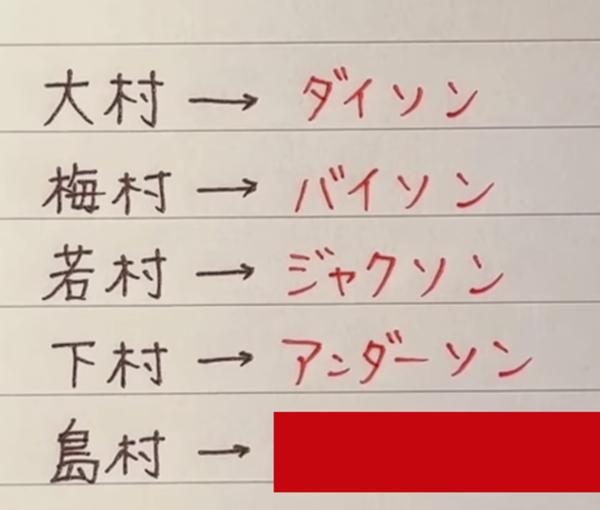 大村 → ダイソン
梅村 → バイソン
若村 → ジャクソン
下村 → アンダーソン
島村 →